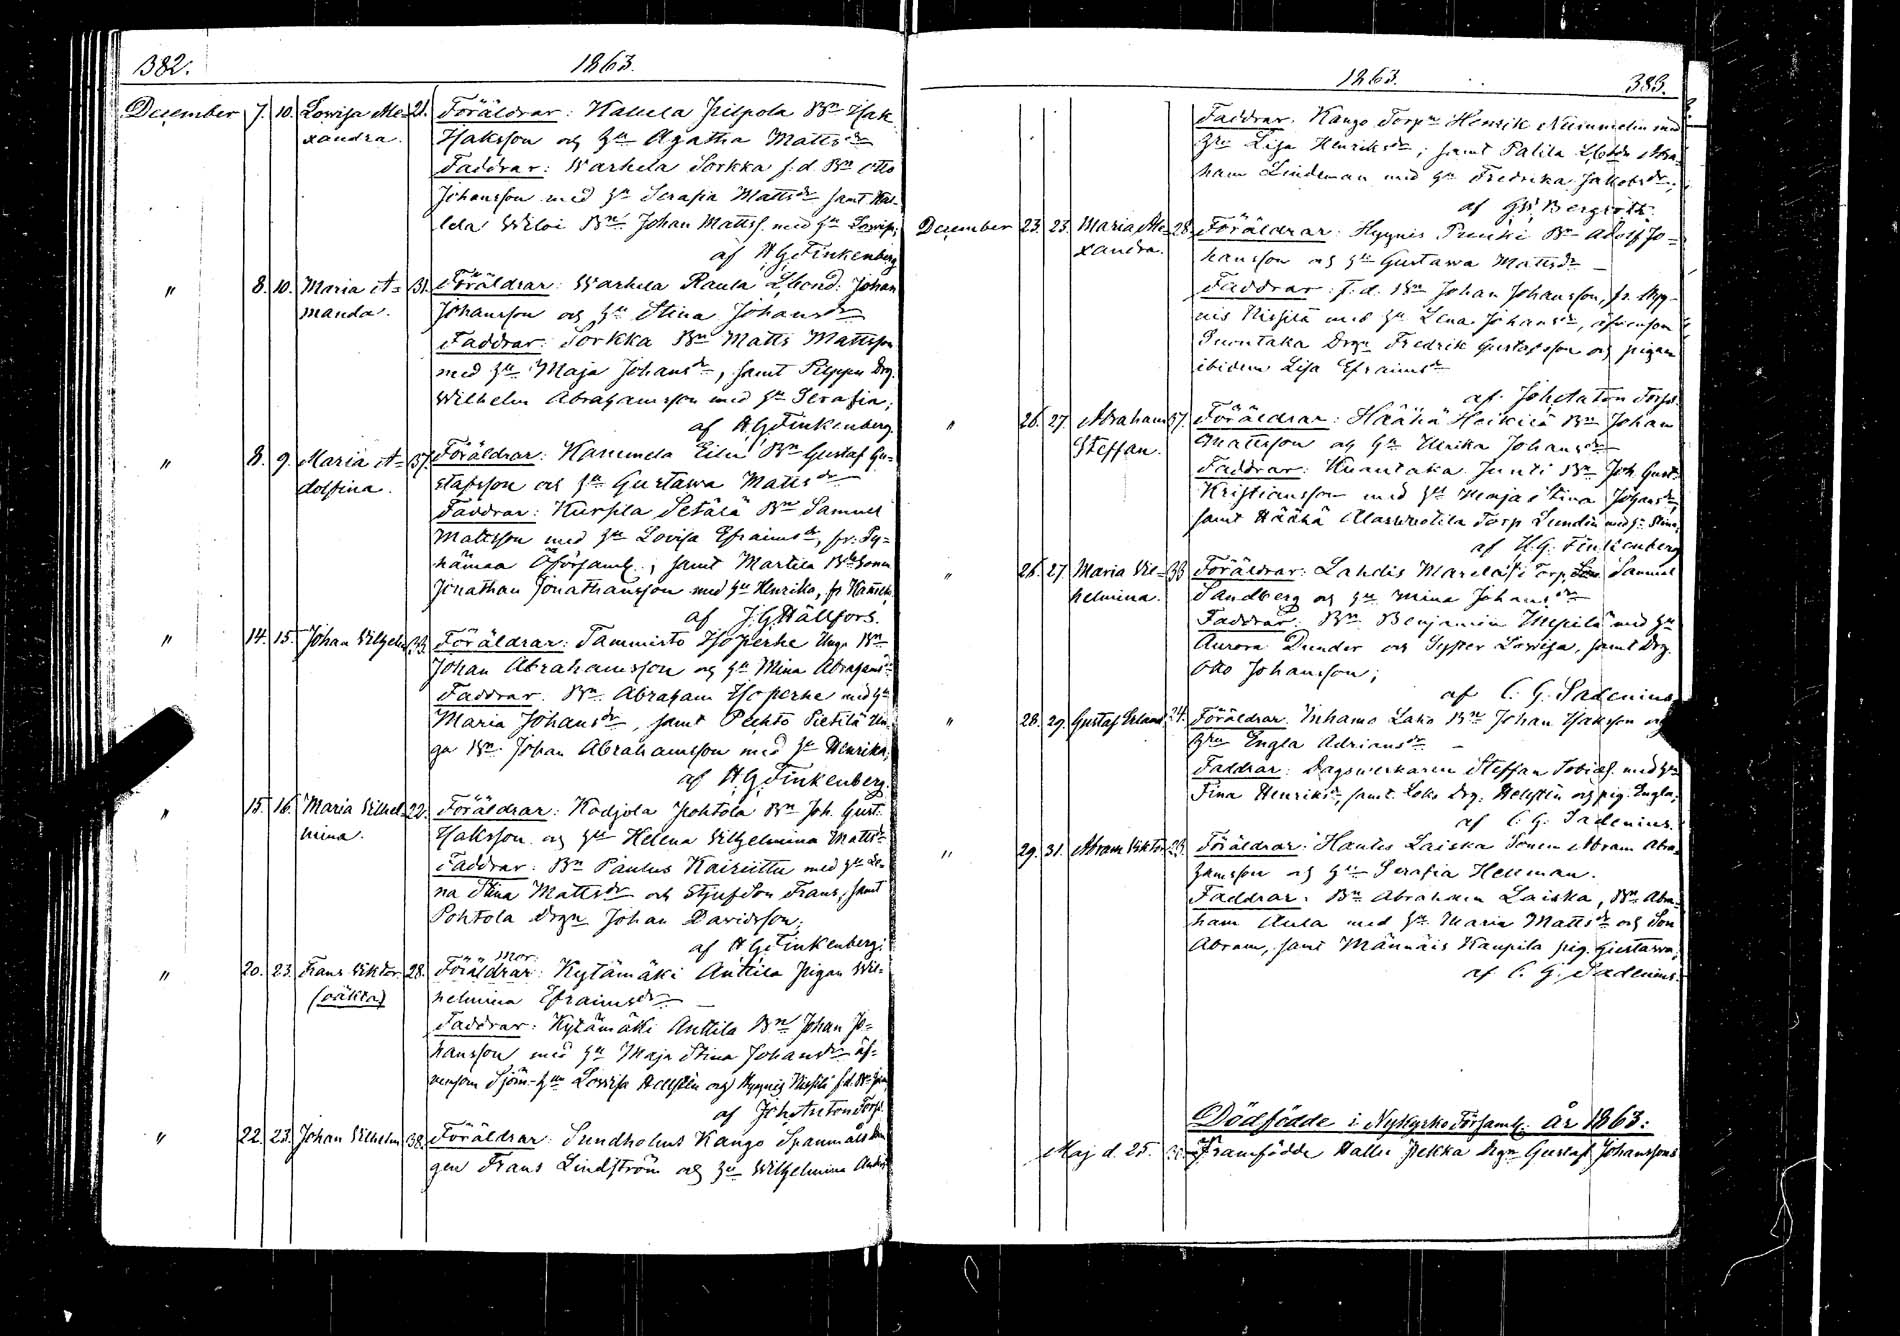 382.
1863.
December 7. 10. Lovisa Ale= 21. Föräldrar: Kallela Pilpola Bn Isak
xandra. Isaksson och Hu Agatha Mattsdr
Faddrar: Warhela Sorkka f.d. Bn Otto
Johansson med Hu Serafia Mattsdr samt Kal-
lela Bn Johan Mattss. med Hu Lovisa;
af H G Finkenberg
" 8. 10. Maria A= 31. Föräldrar: Warhela Raula Johan
manda. Johansson och Hu Stina Johansdr
Faddrar: Sorkka Bn Matts Mattsson
med Hu Maja Johansdr, samt Drg.
Wilhelm Abrahamsson med Hu Serafia;
af H G Finkenberg.
" 8. 9. Maria A= 37. Föräldrar: Kammela Eilu Bn Gustaf Gu=
dolfina. stafsson och Hu Gustava Mattsdr
Faddrar: Kursila Setälä Bn Samuel
Mattsson med Hu Lovisa Efraimsdr, fr. Py=
hämaa Öförsaml., samt Martila Bdesonen
Jonathan Jonathansson med Hu Henrika, fr
af J. G. Hällfors.
" 14. 15. Johan Wilhelm 33. Föräldrar: Tammisto Isoperhe Unga Bn
Johan Abrahamsson och Hu Mina Abrahamsdr
Faddrar: Bn Abraham Isoperhe med Hu
Maria Johansdr, samt Puhto Pietilä Un-
ga Bn Johan Abrahamsson med Hu Henrika;
af H G Finkenberg.
" 15. 16. Maria Wilhel= 22. Föräldrar: Kodjola Pohtola Bn Joh. Gust.
mina. Isaksson och Hu Helena Wilhelmina Mattsdr
Faddrar: Bn Paulus Kairiittu med Hu Le-
na Stina Mattsdr och Styfson Frans, samt
Pohtola Drgn Johan Davidsson;
af H G Finkenberg;
mor
" 20. 23. Frans Viktor. 28. Föräldrar: Kytämäki Anttila Pigan Wil-
(oäkta) helmina Efraimsdr
Faddrar: Kytämäki Anttila Bn Johan Jo=
hansson med Hu Maja Stina Johansdr äf=
vensom Sjöm. Hu Lovisa Hellstén och Hyynis Kirsilä f.d. Bn
af Joh. Anton Forss.
" 22. 23. Johan Wilhelm 38. Föräldrar: Sundholms Kango Spannmåls
gen Frans Lindström och Hu Wilhelmina
1863.
383.
Faddrar. Kango Torpn Henrik Nummelin med
Hu Lisa Henriksdr; samt Palila Abra-
ham Lindeman med Hu Fredrika Jakobsdr;
af Bergroth.
December 23. 23. Maria Ale= 28. Föräldrar: Hyynis Bn Adolf Jo=
xandra. hansson och Hu Gustava Mattsdr
Faddrar: f.d. Bn Johan Johansson, fr. Hyy-
nis Kirsilä med Hu Lena Johansdr, äfvensom
Suontaka Drgn Fredrik Gustafsson och pigan
ibidem Lisa Efraimsdr
af Joh Anton Forss.
" 26. 27. Abraham 37. Föräldrar: Häähä Heikilä Bn Johan
Steffan. Mattsson och Hu Ulrika Johansdr
Faddrar: Kuantaka Junti Bn Joh. Gust.
Kristiansson med Hu Stina Johansdr,
samt Häähä Torp. Lundin med Hu Stina;
af H. G. Finkenberg
" 26. 27. Maria Wil= 33 Föräldrar: Lahdis Marelas Torp. Samuel
helmina. Sandberg och Hu Mina Johansdr
Faddrar: Bn Benjamin med Hu
Aurora Dunder och Syster Lovisa, samt Drg.
Otto Johansson;
af C. G. Sadenius
" 28. 29. Gustaf Erland 24. Föräldrar. Inhamo Lako Bn Johan Isaksson och
Hu Engla Adriansdr
Faddrar: Dagsverkaren Steffan Tobias. med Hu
Fina Henriksdr, samt Drg. Hellstén och pig. Engla;
af C. G. Sadenius.
" 29. 31. Abram Viktor 23. Föräldrar: Haules Laiska Sonen Abram Abra-
hamsson och Hu Serafia Hellman.
Faddrar: Bn Abraham Laiska, Bn Abra-
ham Aula med Hu Maria Mattsdr och Son
Abram, samt Männäis Kaupila pig. Gustava;
af C. G. Sadenius.
Dödfödde i Nykyrko Församl: År 1863:
Maj d. 25. Framfödde Hallu Pekka Drgn Gustaf Johanssons